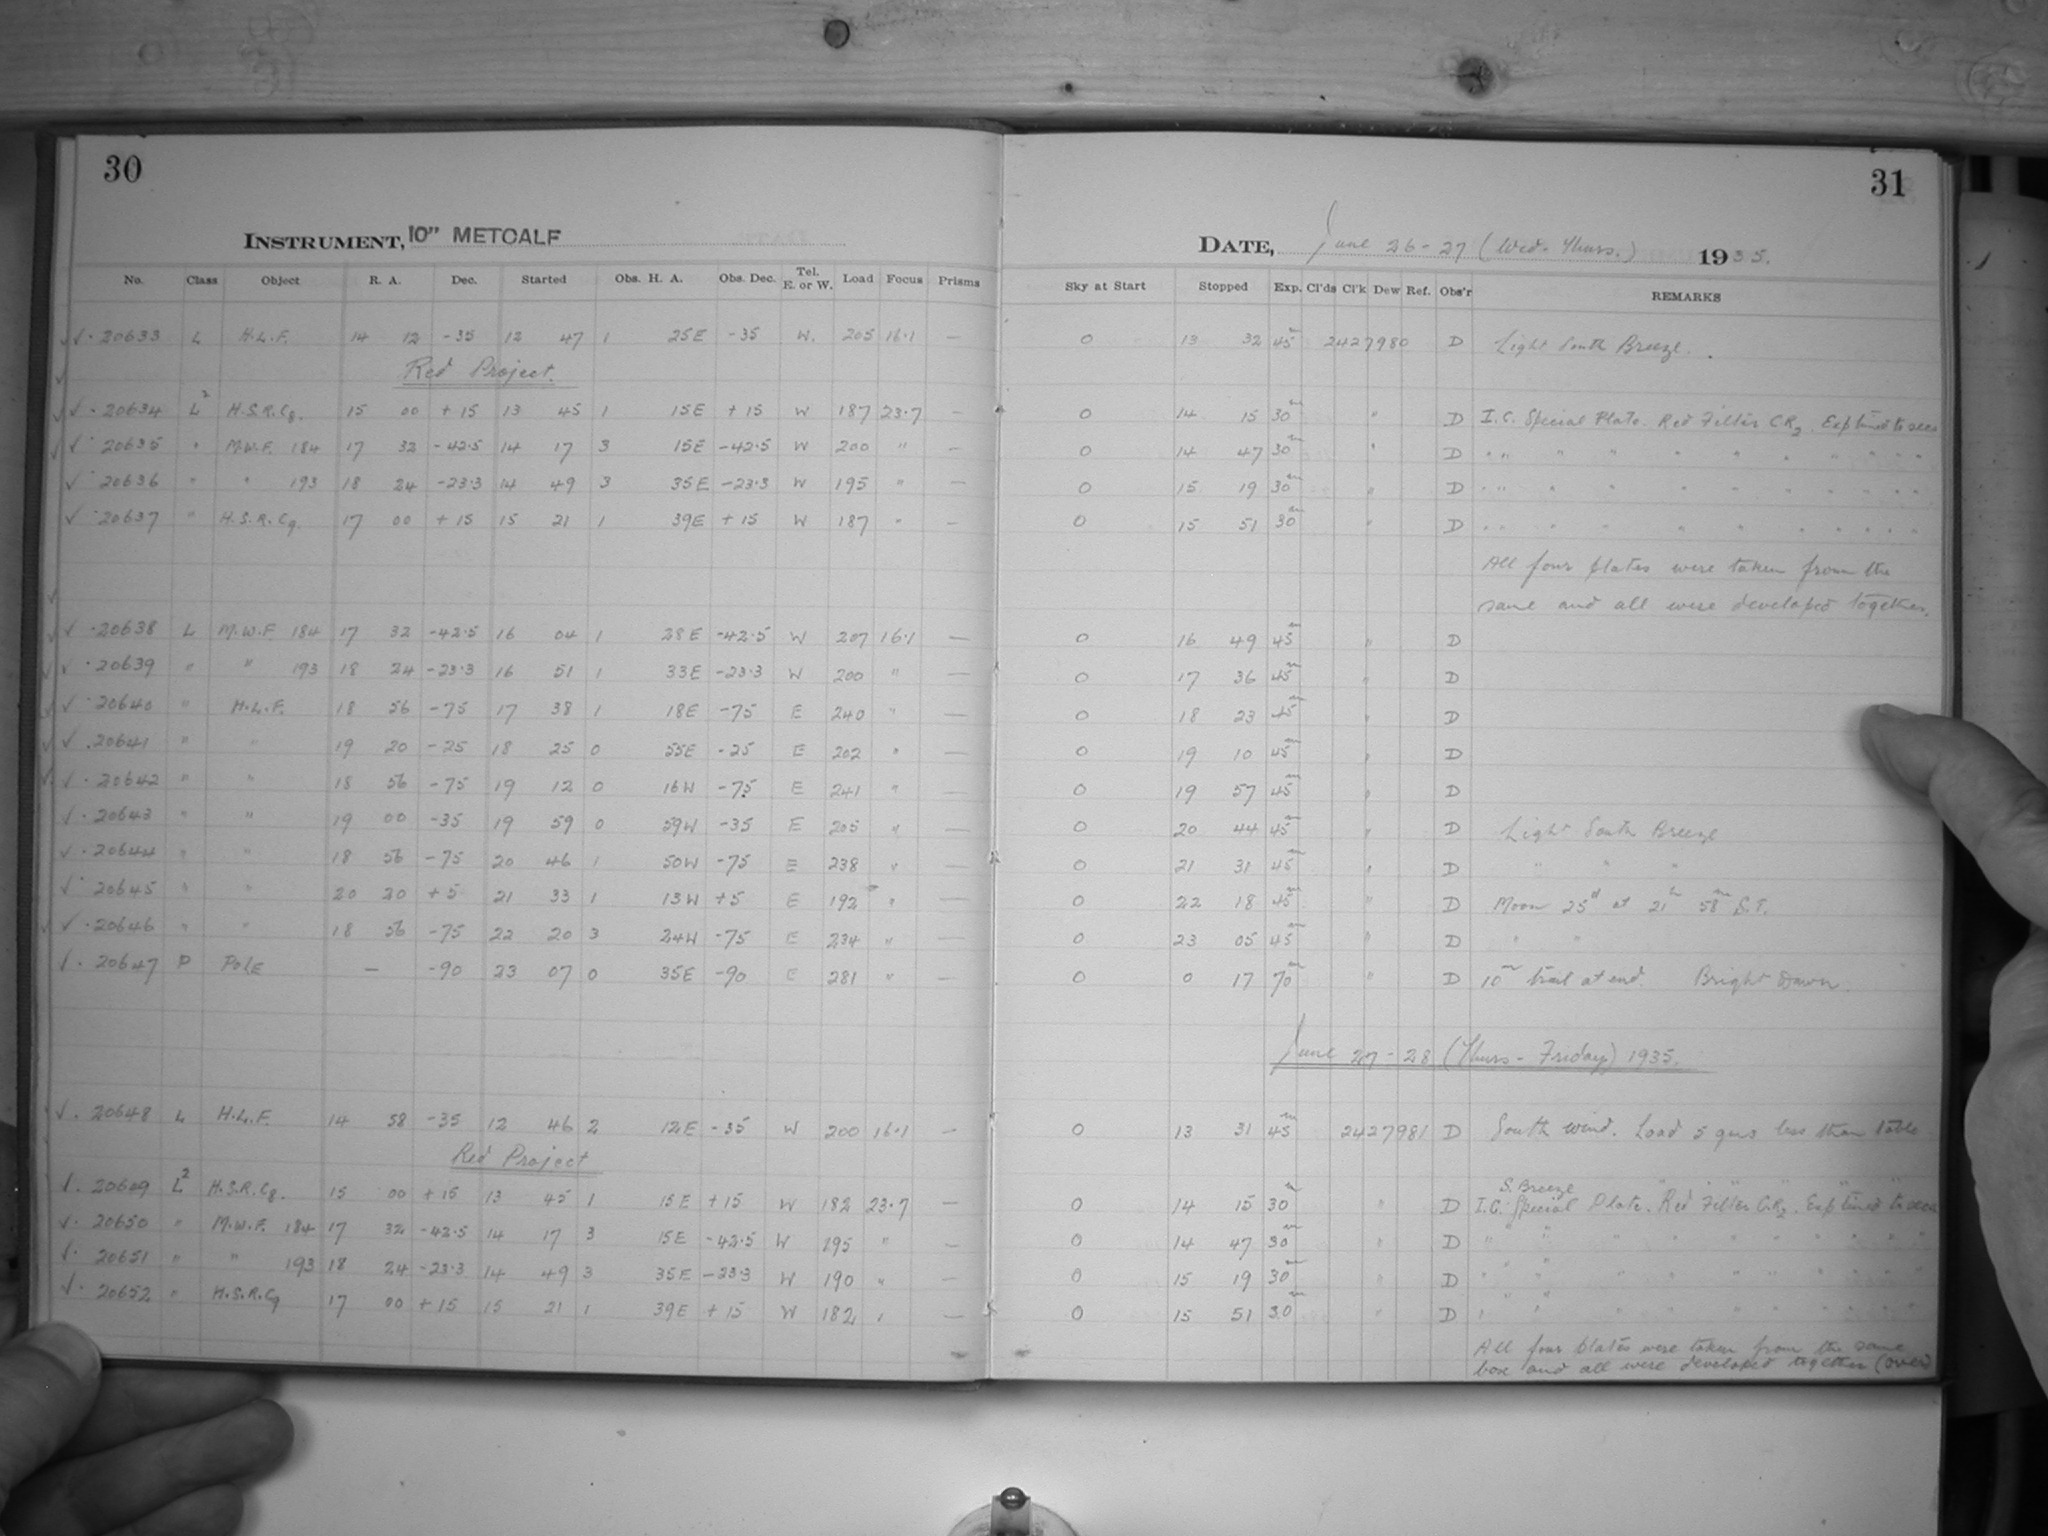 30
INSTRUMENT, 10" METCALF
No. Class Object R. A. Dec. Started Obs. H. A. Obs. Dec. Tel. E. or W. Load Focus Prisms
√ · 20633 L H.L.F. 14 12 -35 12 47 1 25E -35 W. 205 16.1 —
Red Project.
√ · 20634 L² H.S.R.C8. 15 00 +15 13 45 1 15E +15 W 187 23.7 —
√ · 20635 " M.W.F. 184 17 32 -42.5 14 17 3 15E -42.5 W 200 " —
√ · 20636 " " 193 18 24 -23.3 14 49 3 35E -23.3 W 195 " —
√ · 20637 " H.S.R.C9. 17 00 +15 15 21 1 39E +15 W 187 " —
√ · 20638 L M.W.F. 184 17 32 -42.5 16 04 1 28E -42.5 W 207 16.1 —
√ · 20639 " " 193 18 24 -23.3 16 51 1 33E -23.3 W 200 " —
√ · 20640 " H.L.F. 18 56 -75 17 38 1 18E -75 E 240 " —
√ · 20641 " " 19 20 -25 18 25 0 55E -25 E 202 " —
√ · 20642 " " 18 56 -75 19 12 0 16W -75 E 241 " —
√ · 20643 " " 19 00 -35 19 59 0 59W -35 E 205 " —
√ · 20644 " " 18 56 -75 20 46 1 50W -75 E 238 " —
√ · 20645 " " 20 20 +5 21 33 1 13W +5 E 192 " —
√ · 20646 " " 18 56 -75 22 20 3 24W -75 E 234 " —
√ · 20647 P POLE — -90 23 07 0 35E -90 E 281 " —
√ · 20648 L H.L.F. 14 58 -35 12 46 2 12E -35 W 200 16.1 —
Red Project
√ · 20649 L² H.S.R.C8. 15 00 +15 13 45 1 15E +15 W 182 23.7 —
√ · 20650 " M.W.F. 184 17 32 -42.5 14 17 3 15E -42.5 W 195 " —
√ · 20651 " " 193 18 24 -23.3 14 49 3 35E -23.3 W 190 " —
√ · 20652 " H.S.R.C9 17 00 +15 15 21 1 39E +15 W 182 " —
31
DATE, June 26-27 (Wed. Thurs.) 1935.
Sky at Start Stopped Exp. Cl'ds Cl'k Dew Ref. Obs'r REMARKS
0 13 32 45m 2427980 D Light South Breeze.
0 14 15 30m " D I.C. Special Plate. Red Filter CR2. Exp timed to secs
0 14 47 30m " D " " " " " " " " " "
0 15 19 30m " D " " " " " " " " " "
0 15 51 30m " D " " " " " " " " " "
All four plates were taken from the
same and all were developed together.
0 16 49 45m " D
0 17 36 45m " D
0 18 23 45m " D
0 19 10 45m " D
0 19 57 45m " D
0 20 44 45m " D Light South Breeze
0 21 31 45m " D " " "
0 22 18 45m " D Moon 25d at 21h 58m S.T.
0 23 05 45m " D " "
0 0 17 70m " D 10m trail at end. Bright Dawn.
June 27-28 (Thurs - Friday) 1935.
0 13 31 45m 2427981 D South wind. Load 5 less than table
S. Breeze
0 14 15 30m " D I.C. Special Plate. Red Filter CR2. Exp timed to secs
0 14 47 30m " D " " " " " " " " " "
0 15 19 30m " D " " " " " " " " " "
0 15 51 30m " D " " " " " " " " " "
All four plates were taken from the same
box and all were developed together (over)